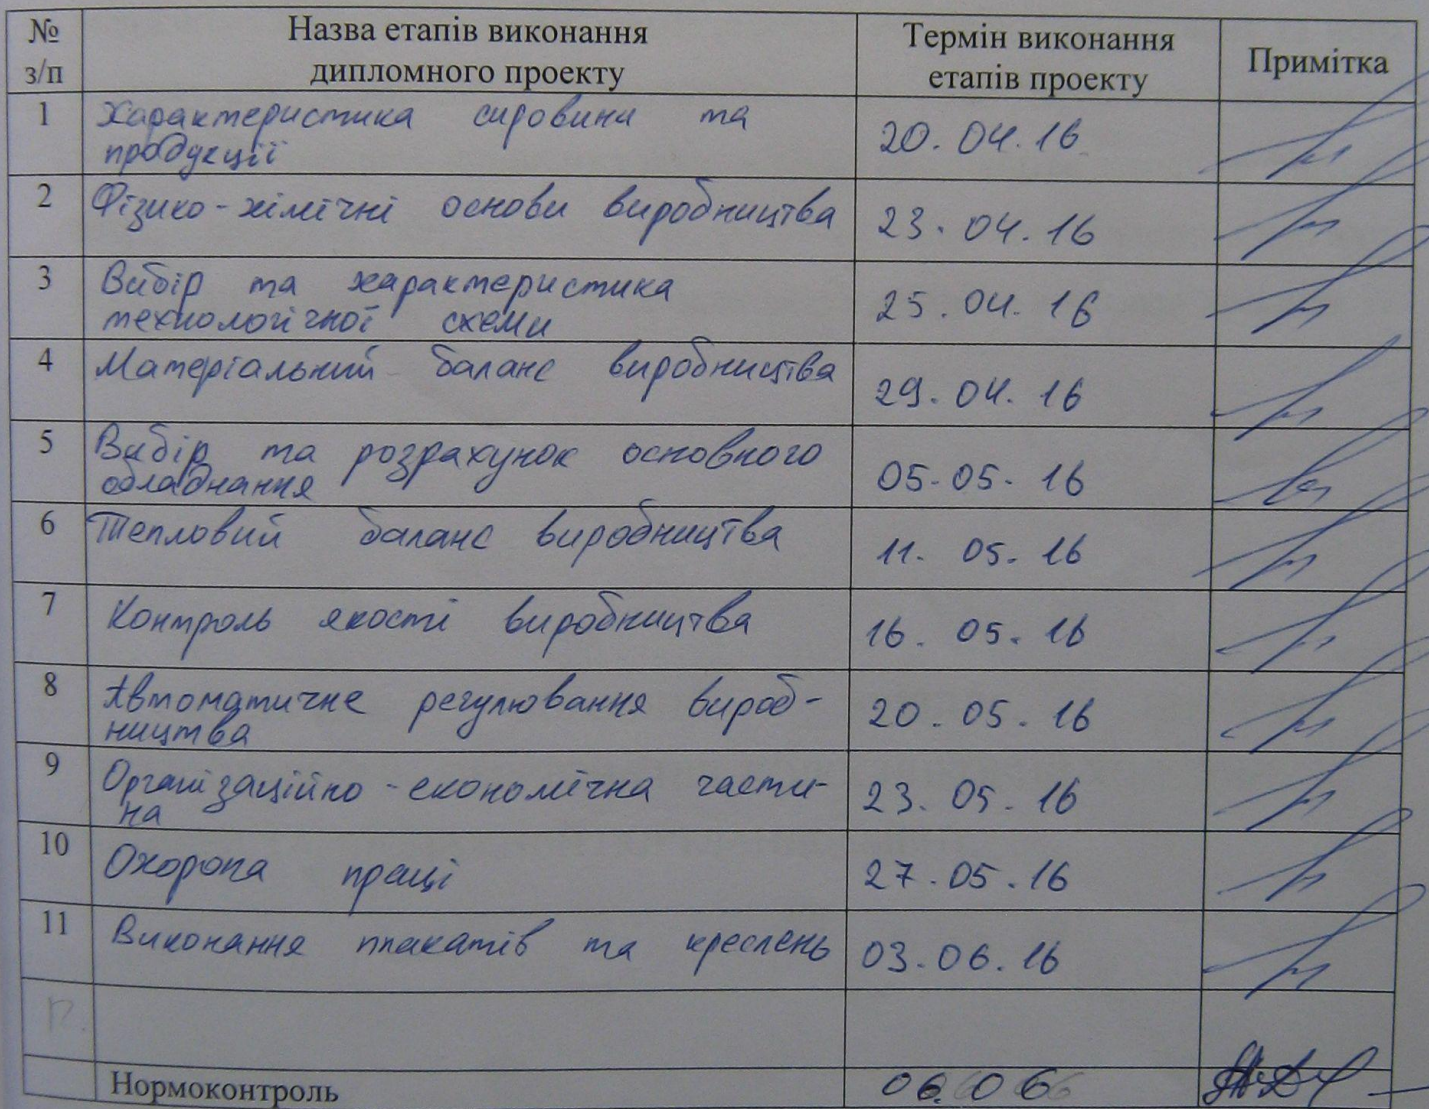 № з/п Назва етапів виконання дипломного проекту Термін виконання етапів проекту Примітка
1 Характеристика сировини та
продукції 20.04.16
2 Фізико-хімічні основи виробництва 23.04.16
3 Вибір та характеристика
технологічної схеми 25.04.16
4 Матеріальний баланс виробництва 29.04.16
5 Вибір та розрахунок основного
обладнання 05.05.16
6 Тепловий баланс виробництва 11.05.16
7 Контроль якості виробництва 16.05.16
8 Автоматичне регулювання вироб-
ництва 20.05.16
9 Організаційно-економічна части-
на 23.05.16
10 Охорона праці 27.05.16
11 Виконання плакатів та креслень 03.06.16
Нормоконтроль 06.06